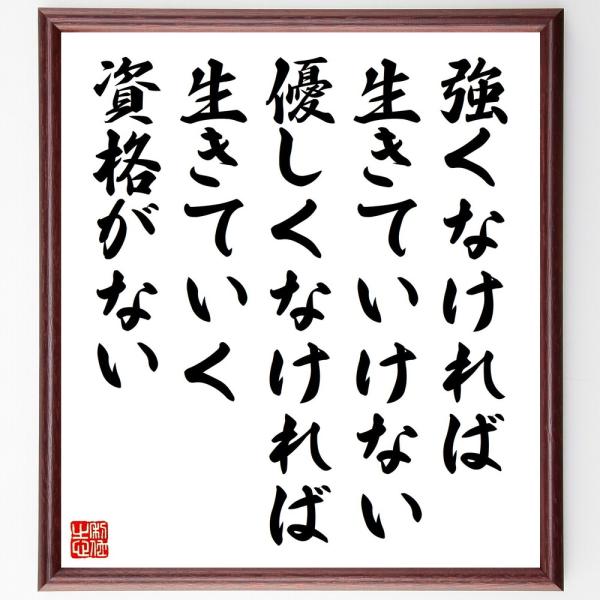 強くなければ
生きていけない
優しくなければ
生きていく
資格がない